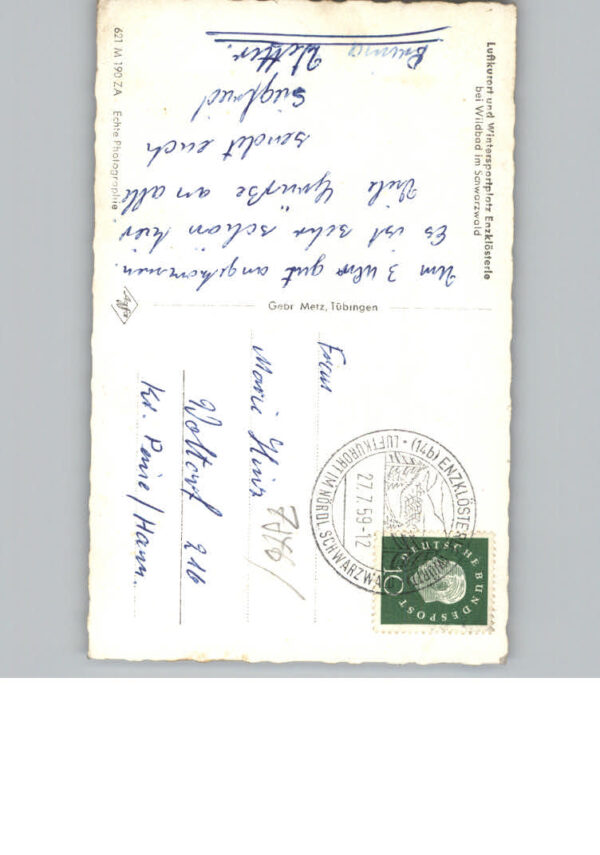 Luftkurort und Wintersportplatz Enzklösterle
bei Wildbad im Schwarzwald
Um 3 Uhr gut angekommen.
Es ist sehr schön hier
Viele Grüße an alle
sendet euch
Siegfried
Prima Wetter.
621 M 190 ZA Echte Photographie
Agfa
Gebr. Metz, Tübingen
Frau
Marie Hinz
Woltorf 216
Kr. Peine/Hann.
(1416) ENZKLÖSTERLE
27.7.59-12
LUFTKURORT IM NÖRDL. SCHWARZWALD
DEUTSCHE BUNDESPOST
10